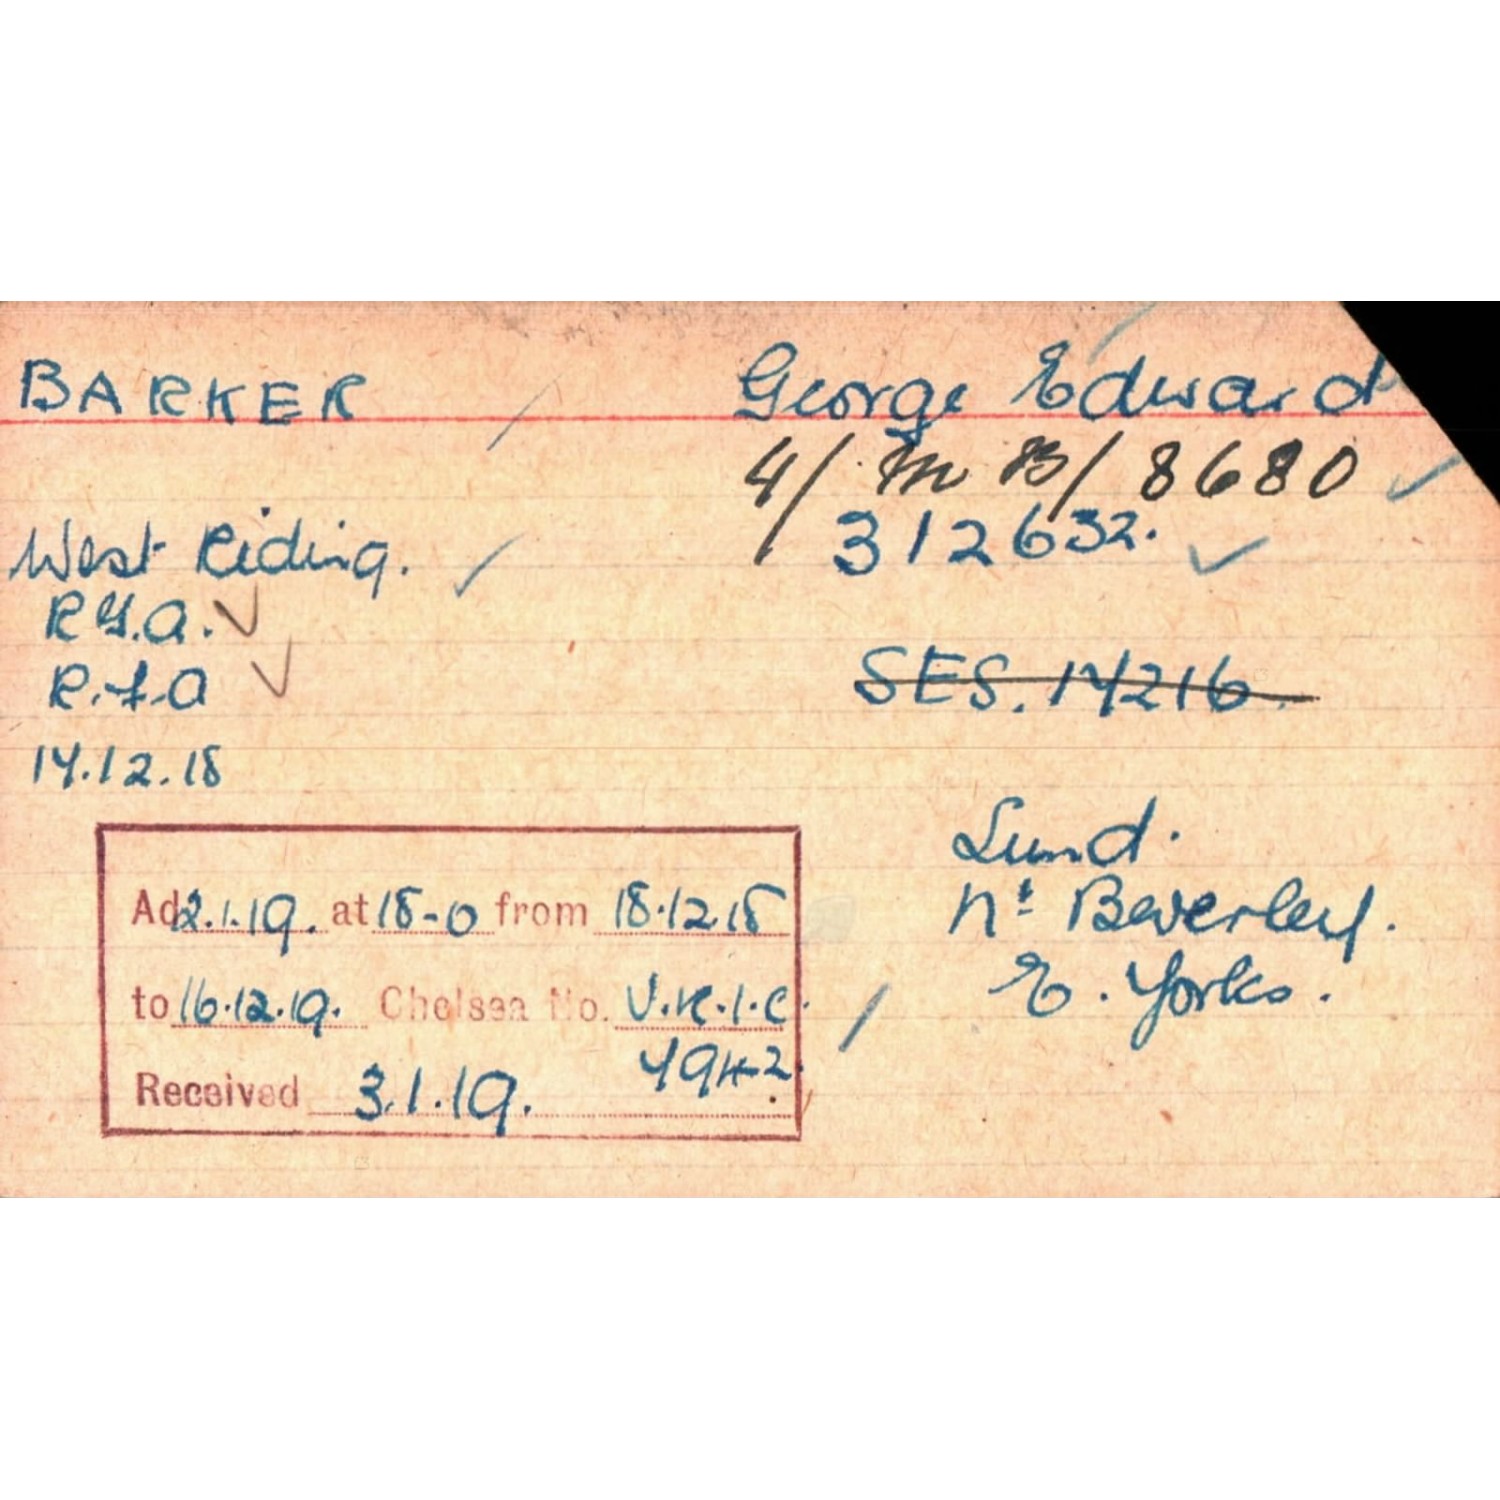 BARKER George Edward
4/MB/8680
312632.
West Riding.
R.G.A.
R.F.A
SES. 14216.
14.12.18
Lund.
Nr Beverley.
E. Yorks.
Ad 2.1.19. at 18-0 from 18.12.18
to 16.12.19. Chelsea No. U.K.I.C.
4942.
Received 3.1.19.